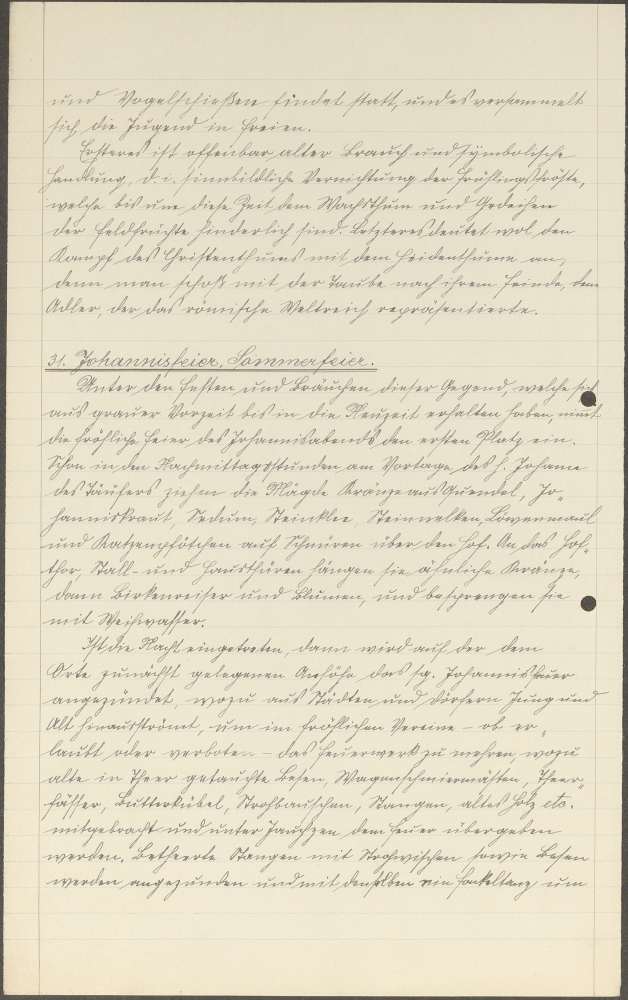 und Vogelschießen findet statt, und es versammelt
sich die Jugend in Freien.
Ersteres ist offenbar alter Brauch und symbolische
Handlung, d. i. sinnbildliche Vernichtung der Frühlingsfröste,
welche bis um diese Zeit dem Wachsthum und Gedeihen
der Feldfrüchte hinderlich sind. Letzteres deutet wol den
Kampf des Christenthums mit dem Heidenthume an,
denn man schoß mit der Taube nach ihrem Feinde, dem
Adler, der das römische Weltreich repräsentierte.
31. Johannisfeier, Sommerfeier.
Unter den Festen und Bräuchen dieser Gegend, welche sich
aus grauer Vorzeit bis in die Neuzeit erhalten haben, nimmt
die fröhliche Feier des Johannisabends den ersten Platz ein.
Schon in den Nachmittagsstunden am Vortage des h. Johann
des Täufers ziehen die Mägde Kränze aus Quendel, Jo-
hanniskraut, Sedum, Steinklee, Steinnelken, Löwenmaul
und Katzenpfötchen auf Schnüren über den Hof. An das Hof-
thor, Stall- und Hausthüren hängen sie ähnliche Kränze,
dann Birkenreiser und Blumen, und besprengen sie
mit Weihwasser.
Ist die Nacht eingetreten, dann wird auf der dem
Orte zunächst gelegenen Anhöhe das sg. Johannisfeuer
angezündet, wozu aus Städten und Dörfern Jung und
Alt hinausströmt, um im fröhlichen Vereine - ob er-
laubt oder verboten - das Feuerwerk zu mehren, wozu
alte in Theer getauchte Besen, Wagenschmiermästen, Theer-
fässer, Butterkübel, Strohbauschen, Stangen, altes Holz etc.
mitgebracht und unter Jauchzen dem Feuer übergeben
werden. Betheerte Stangen mit Strohwischen sowie Besen
werden angezunden und mit denselben ein Fackeltanz um